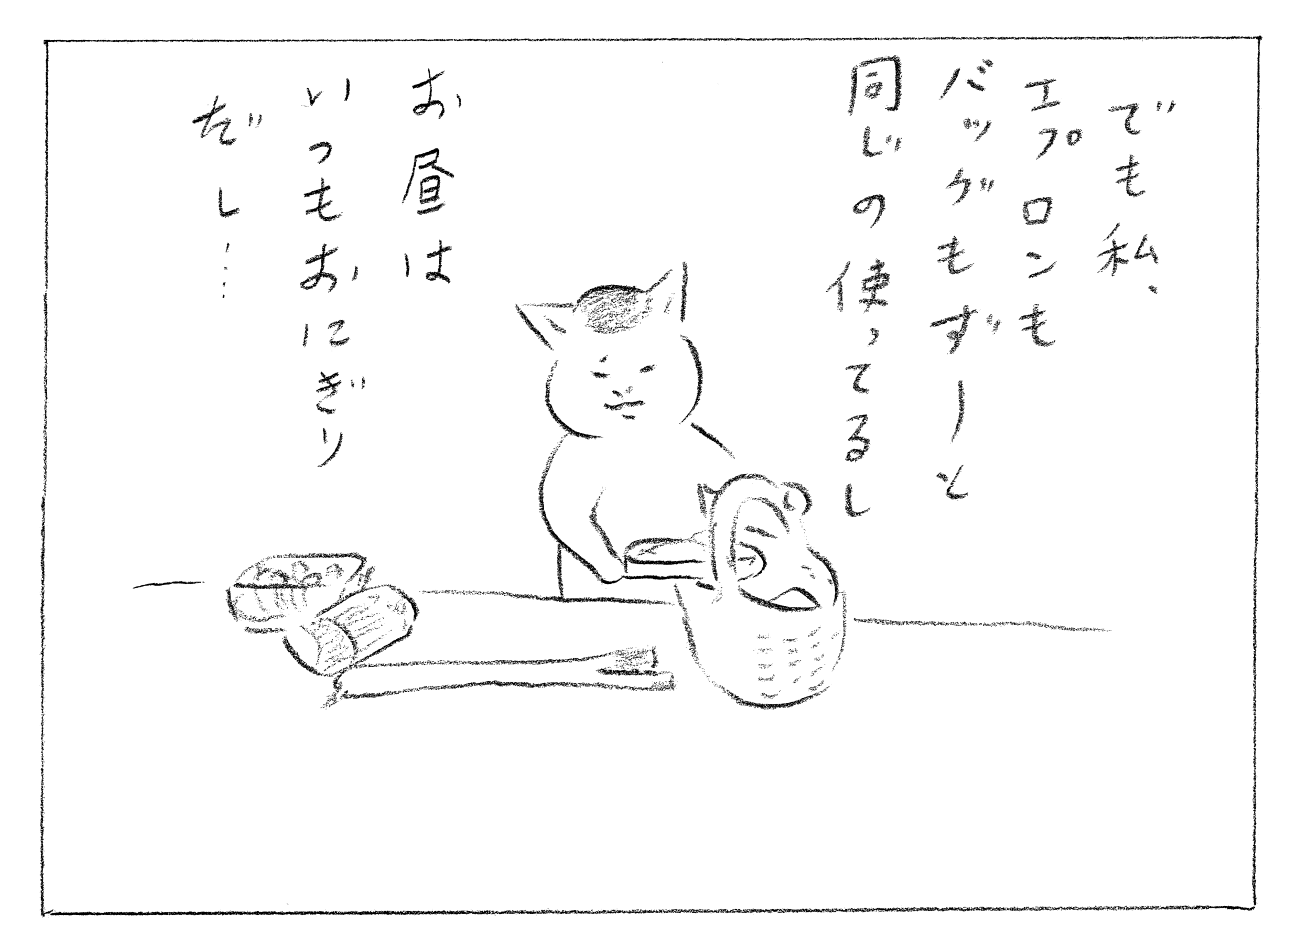 でも私、
エプロンも
バッグもずーっと
同じの使ってるし
お昼は
いつもおにぎり
だし…